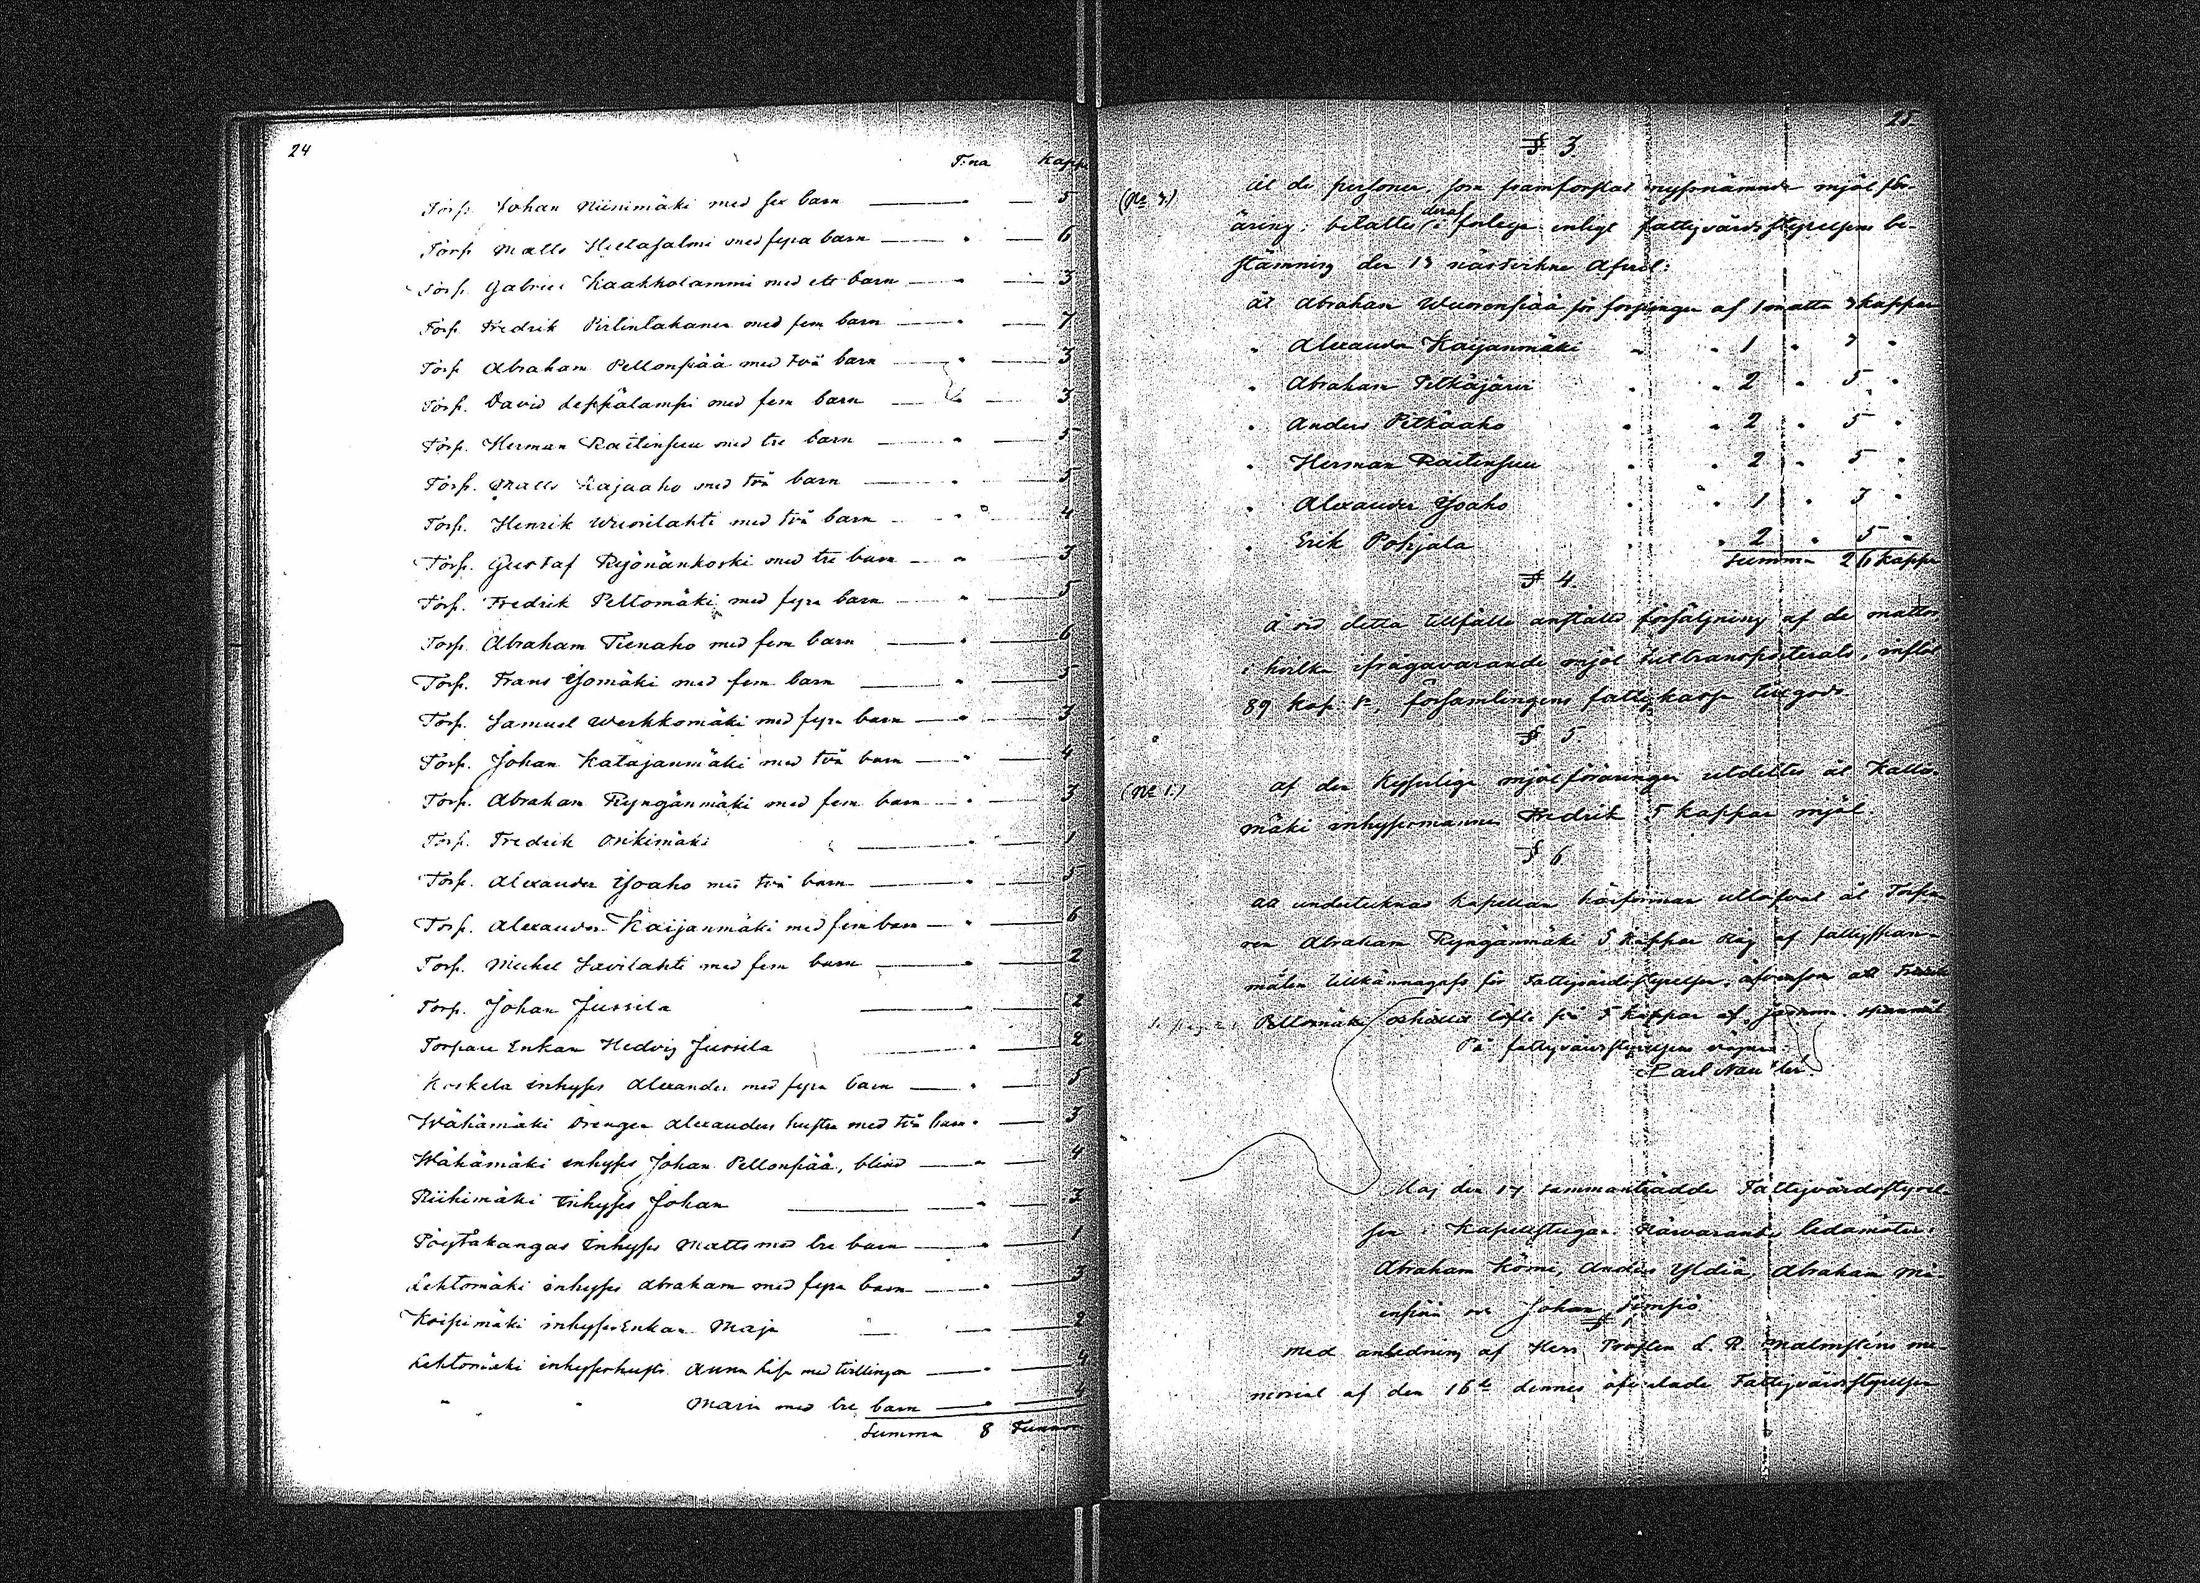 24
T:na Kapp.
Torp. Johan Niinimäki med sex barn — " — 5
Torp. Matts Hietasalmi med fyra barn — " — 6
Torp. Gabriel Kaakkolammi med ett barn — " — 3
Torp. Fredrik Pirtinlakanen med fem barn — " — 7
Torp. Abraham Pellonpää med två barn — " — 3
Torp. David Leppälampi med fem barn — " — 3
Torp. Herman Raitinsuu med tre barn — " — 5
Torp. Matts Rajaaho med två barn — " — 5
Torp. Henrik Wuorilahti med två barn — " — 4
Torp. Gustaf Ryönänkoski med tre barn — " — 3
Torp. Fredrik Peltomäki med fyra barn — " — 5
Torp. Abraham Tienaho med fem barn — " — 6
Torp. Frans Isomäki med fem barn — " — 5
Torp. Samuel Werkkomäki med fyra barn — " — 3
Torp. Johan Katajanmäki med två barn — " — 4
Torp. Abraham Ryngänmäki med fem barn — " — 3
Torp. Fredrik Onkimäki — " — 1
Torp. Alexander Isoaho med två barn — " — 5
Torp. Alexander Kaijanmäki med fem barn — " — 6
Torp. Mickel Savilahti med fem barn — " — 2
Torp. Johan Jussila — " — 2
Torpare Enkan Hedvig Jussila — " — 2
Koskela inhyses Alexander med fyra barn — " — 5
Wähämäki Drengen Alexanders hustru med två barn " — 3
Wähämäki inhyses Johan Pellonpää, blind — " — 4
Riihimäki Inhyses Johan — " — 3
Pöytäkangas Inhyses Matts med tre barn — " — 1
Lehtomäki inhyses Abraham med fyra barn — " — 3
Koipimäki inhyses Enkan Maja — " — 2
Lehtomäki inhyseshustr. Anna Lisa med tvillingar — " — 4
" " " Maria med tre barn — " — 4
Summa 8 Tunnor
25.
§ 3.
åt de personer, som framforslat nyssnämnde mjöl för-
äring; betaltes deraf i forlega enligt fattigvårdsstyrelsens be-
stämning den 13 nästvikne April:
åt Abraham Wuorenpää för forslingen af 1 matta 3 kappar
" Alexander Kaijanmäki " " 1 " 3 "
" Abraham Pitkäjärvi " " 2 " 5 "
" Anders Pitkäaho " " 2 " 5 "
" Herman Raitinsuu " " 2 " 5 "
" Alexander Isoaho " " 1 " 3 "
" Erik Pohjala " " 2 " 5 "
Summa 26 kappar
§ 4.
å vid detta tillfälle anstälts försäljning af de mattor
i hvilka ifrågavarande mjöl hittransporterats, inflöt
89 kop. , församlingens fattigkassa till godo.
§ 5.
(No 1.) af den Kejserliga mjölföräringen utdeltes åt Kallio-
mäki inhysesmannen Fredrik 5 kappar mjöl.
§ 6.
kapellan åt Torpa-
ren Abraham Ryngänmäki 5 kappar Råg af fattigspan-
målen tillkännagafs för Fattigvårdsstyrelsen, äfvensom att Fredrik
Peltomäki erhållit löfte för 5 kappar af spannmål
På fattigvårdsstyrelsens vägnar:
Carl
Maj den 17 sammanträdde Fattigvårdsstyrel-
sen i Kapellstugan. Närvarande ledamöter:
Abraham Körni, Anders Yldiä, Abraham
och Johan Simpsiö.
§ 1
Med anledning af Herr Prosten L. R. Malmsténs me-
morial af den 16de dennes Fattigvårdsstyrelsen